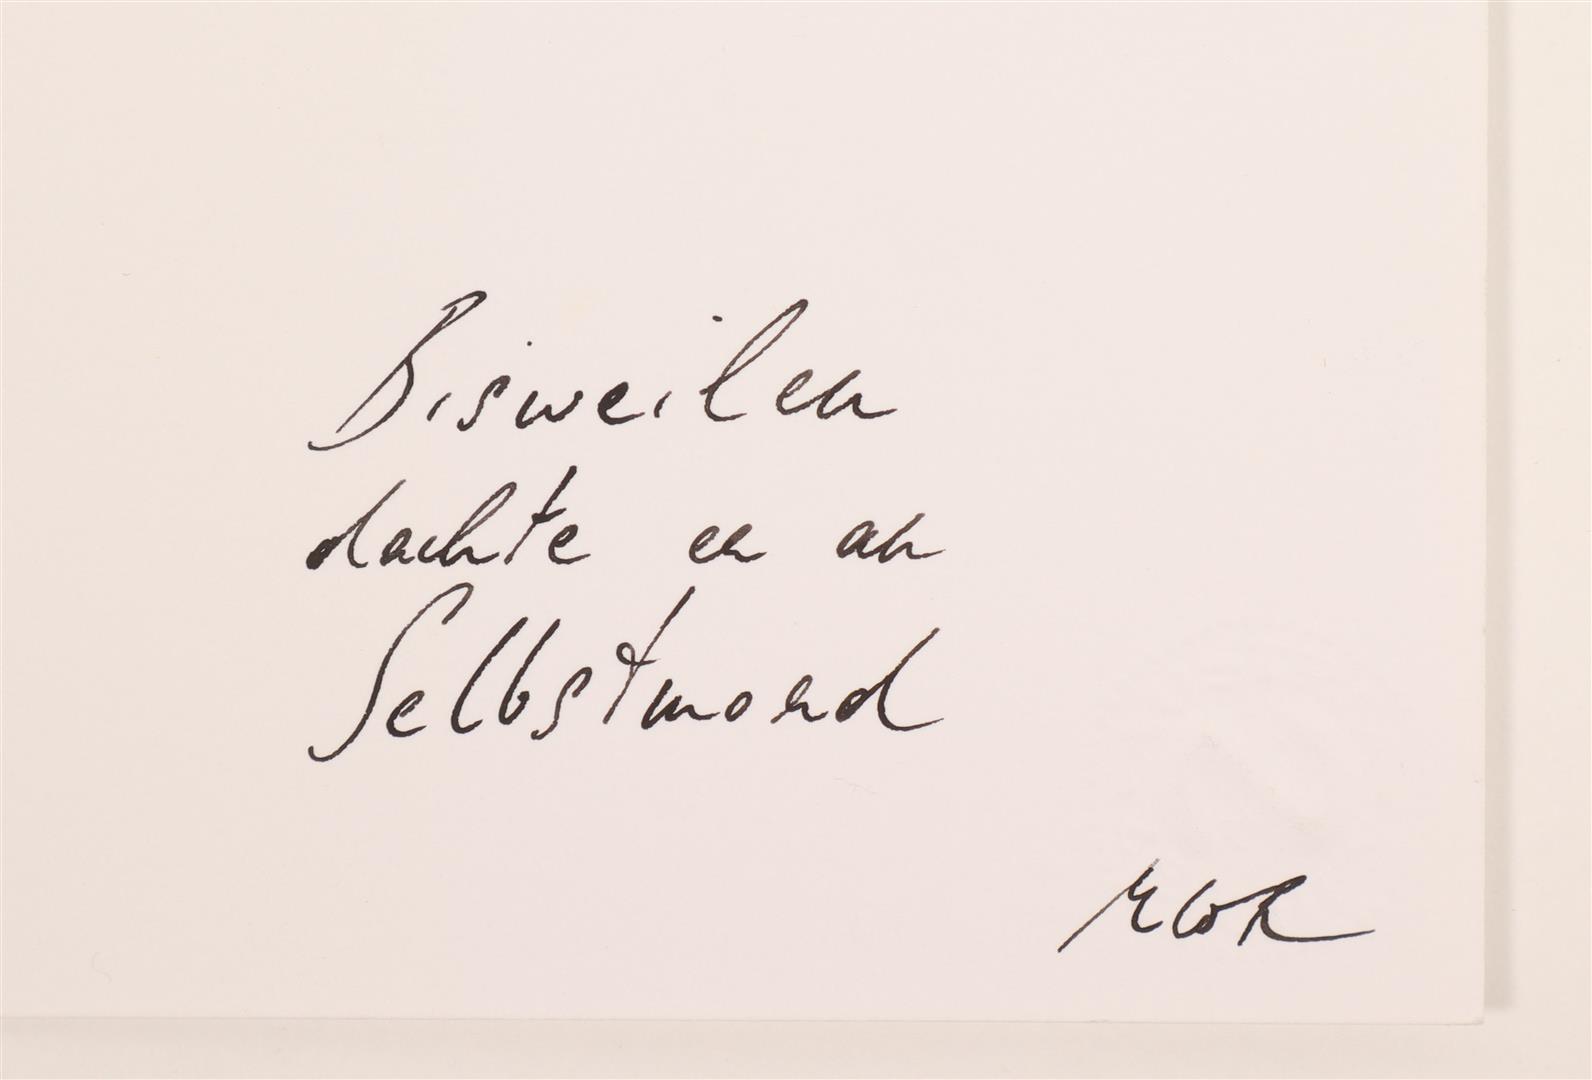 Bisweilen
dachte er an
Selbstmord